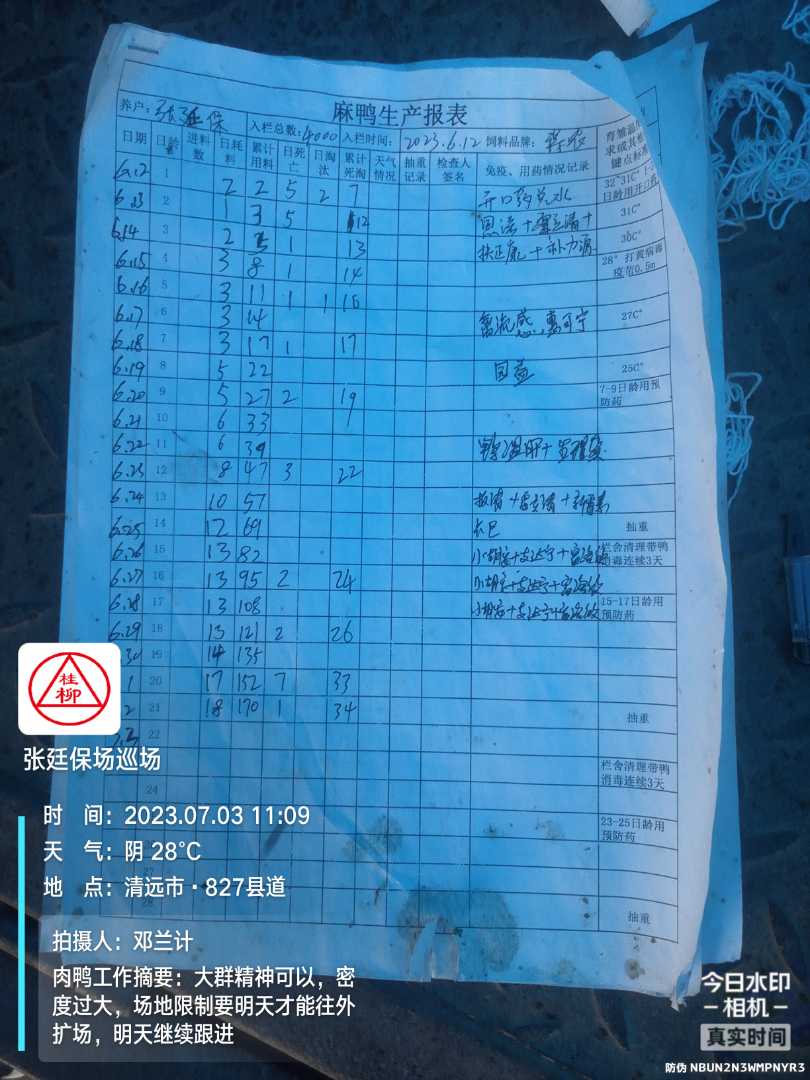 麻鸭生产报表
养户：张延保 入栏总数：4000 入栏时间：2023.6.12 饲料品牌：
日期 日龄 进料数 日耗料 累计用料 日死亡 日淘汰 累计死淘 天气情况 抽重记录 检查人签名 免疫、用药情况记录
6.12 1 2 2 5 2 7 开口药兑水 32~31C°
日龄用开口药
6.13 2 1 3 5 12 31C°
6.14 3 2 5 1 13 30C°
6.15 4 3 8 1 14 28° 打黄病毒疫苗0.5m
6.16 5 3 11 1 1 16
6.17 6 3 14 禽流感 27C°
6.18 7 3 17 1 17
6.19 8 5 22 25C°
6.20 9 5 27 2 19 7-9日龄用预防药
6.21 10 6 33
6.22 11 6 39
6.23 12 8 47 3 22
6.24 13 10 57
6.25 14 12 69 抽重
6.26 15 13 82 栏舍清理带鸭消毒连续3天
6.27 16 13 95 2 24
6.28 17 13 108 15-17日龄用预防药
6.29 18 13 121 2 26
19 14 135
1 20 17 152 7 33
2 21 18 170 1 34 抽重
22
栏舍清理带鸭消毒连续3天
24
23-25日龄用预防药
28 抽重
桂柳
张廷保场巡场
时 间：2023.07.03 11:09
天 气：阴 28℃
地 点：清远市·827县道
拍摄人：邓兰计
肉鸭工作摘要：大群精神可以，密
度过大，场地限制要明天才能往外
扩场，明天继续跟进
今日水印
相机
真实时间
防伪 NBUN2N3WMPNYR3